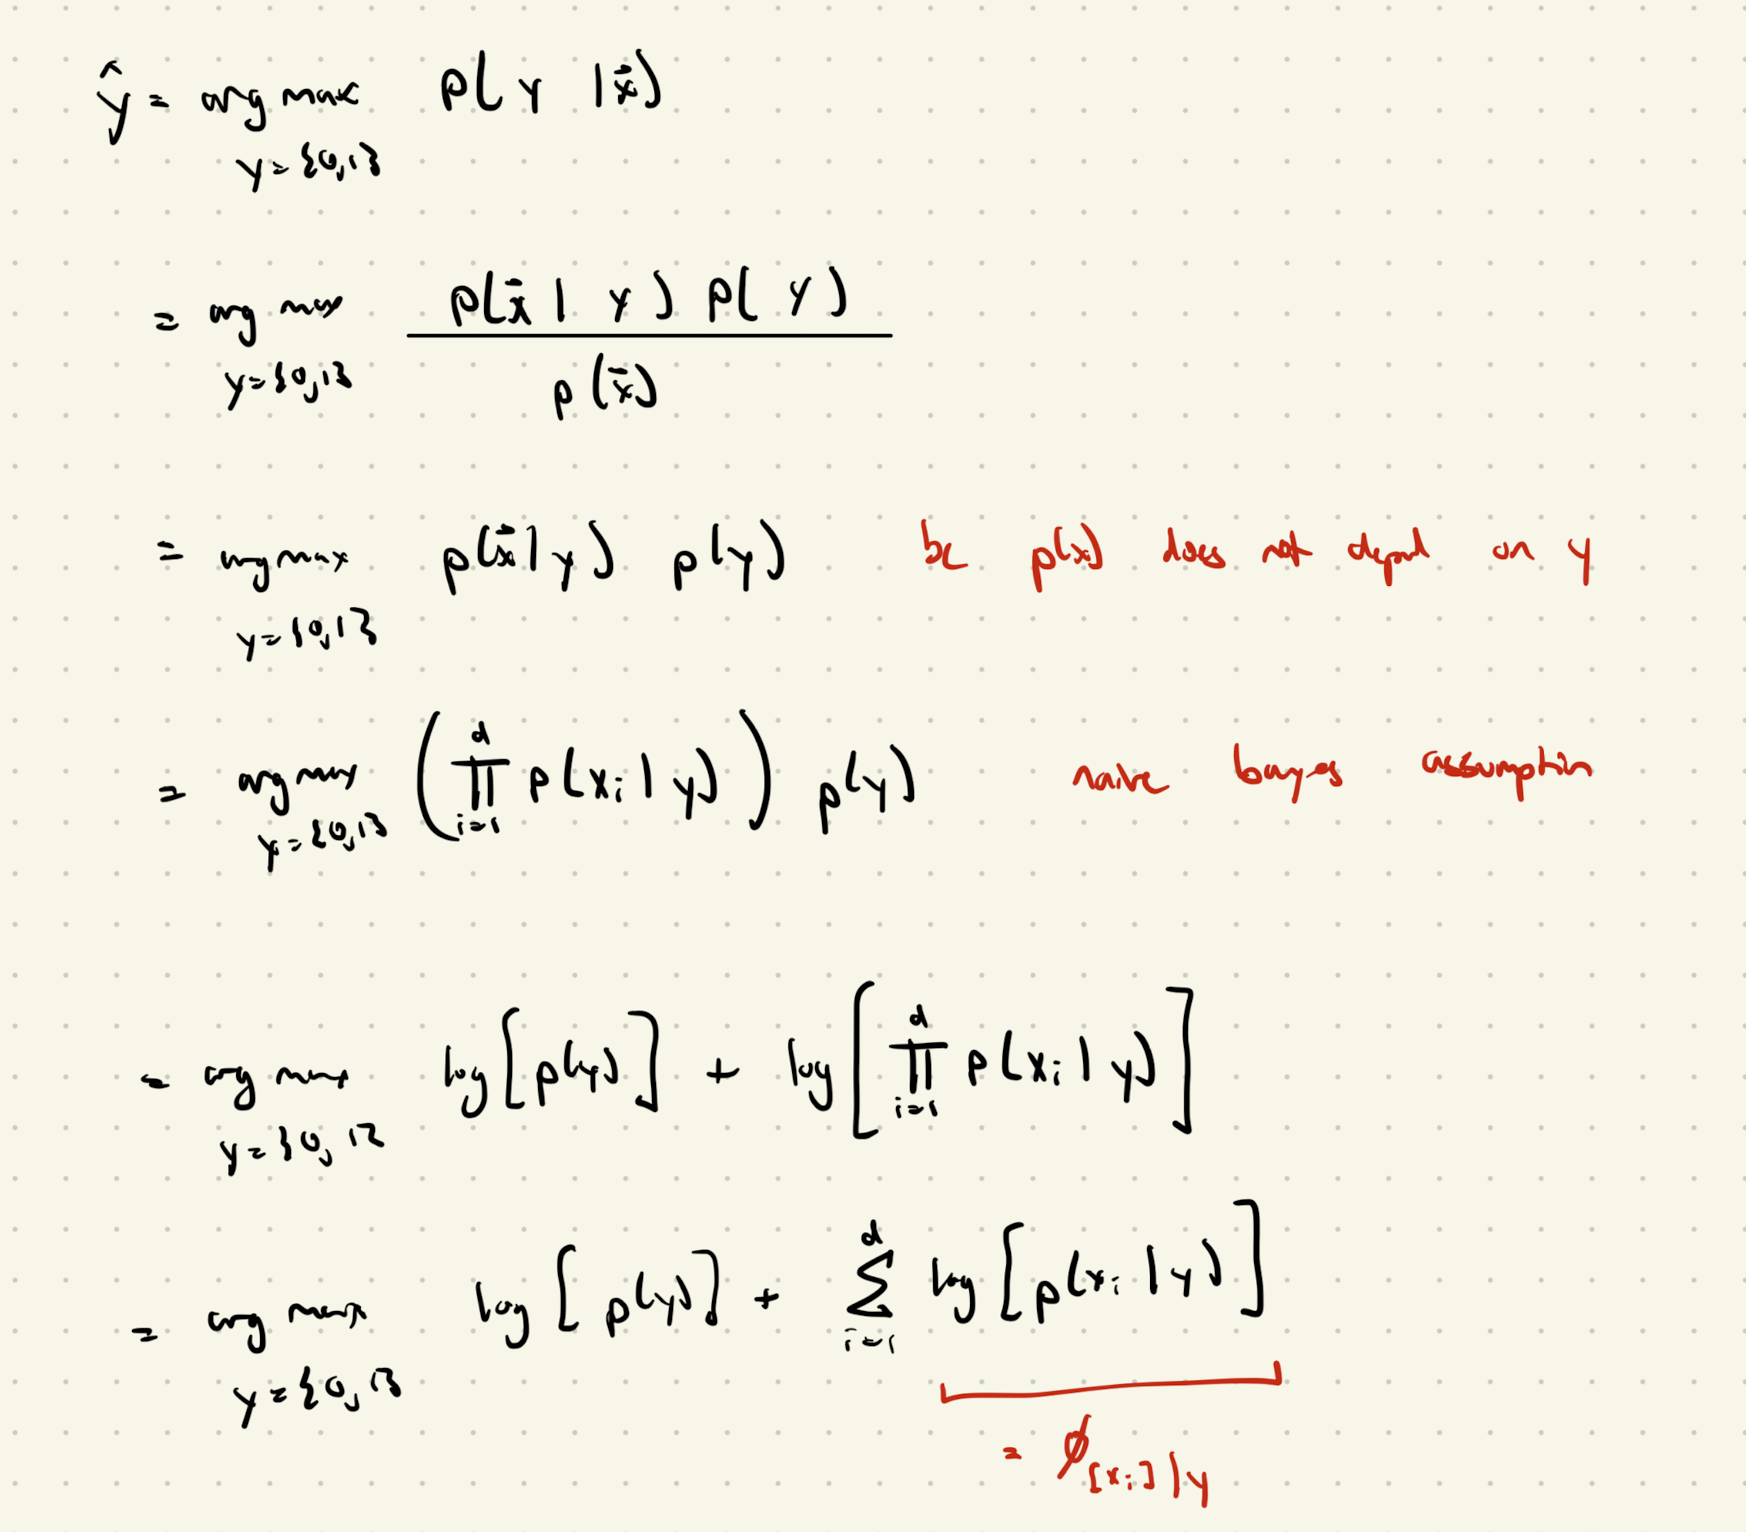 ŷ = arg max p(y | x̄)
y = {0,1}
= arg max p(x̄ | y) p(y)
y = {0,1} p(x̄)
= arg max p(x̄ | y) p(y) bc p(x) does not depend on y
y = {0,1}
= arg max (∏ᵢ₌₁ᵈ p(xᵢ | y)) p(y) naive bayes assumption
y = {0,1}
= arg max log[p(y)] + log[∏ᵢ₌₁ᵈ p(xᵢ | y)]
y = {0,1}
= arg max log[p(y)] + ∑ᵢ₌₁ᵈ log[p(xᵢ | y)]
y = {0,1}
= ϕ[xᵢ]|y